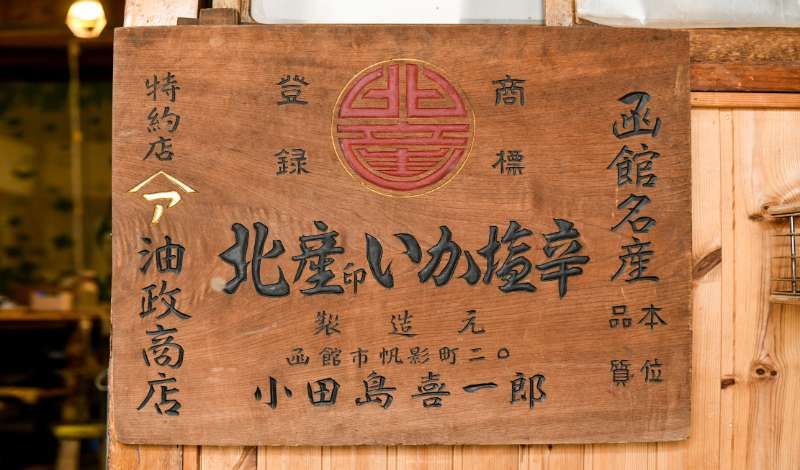 函館名産
品質本位
商標
登録
北産
北産印いか塩辛
製造元
函館市帆影町二〇
小田島喜一郎
特約店
ア
油政商店